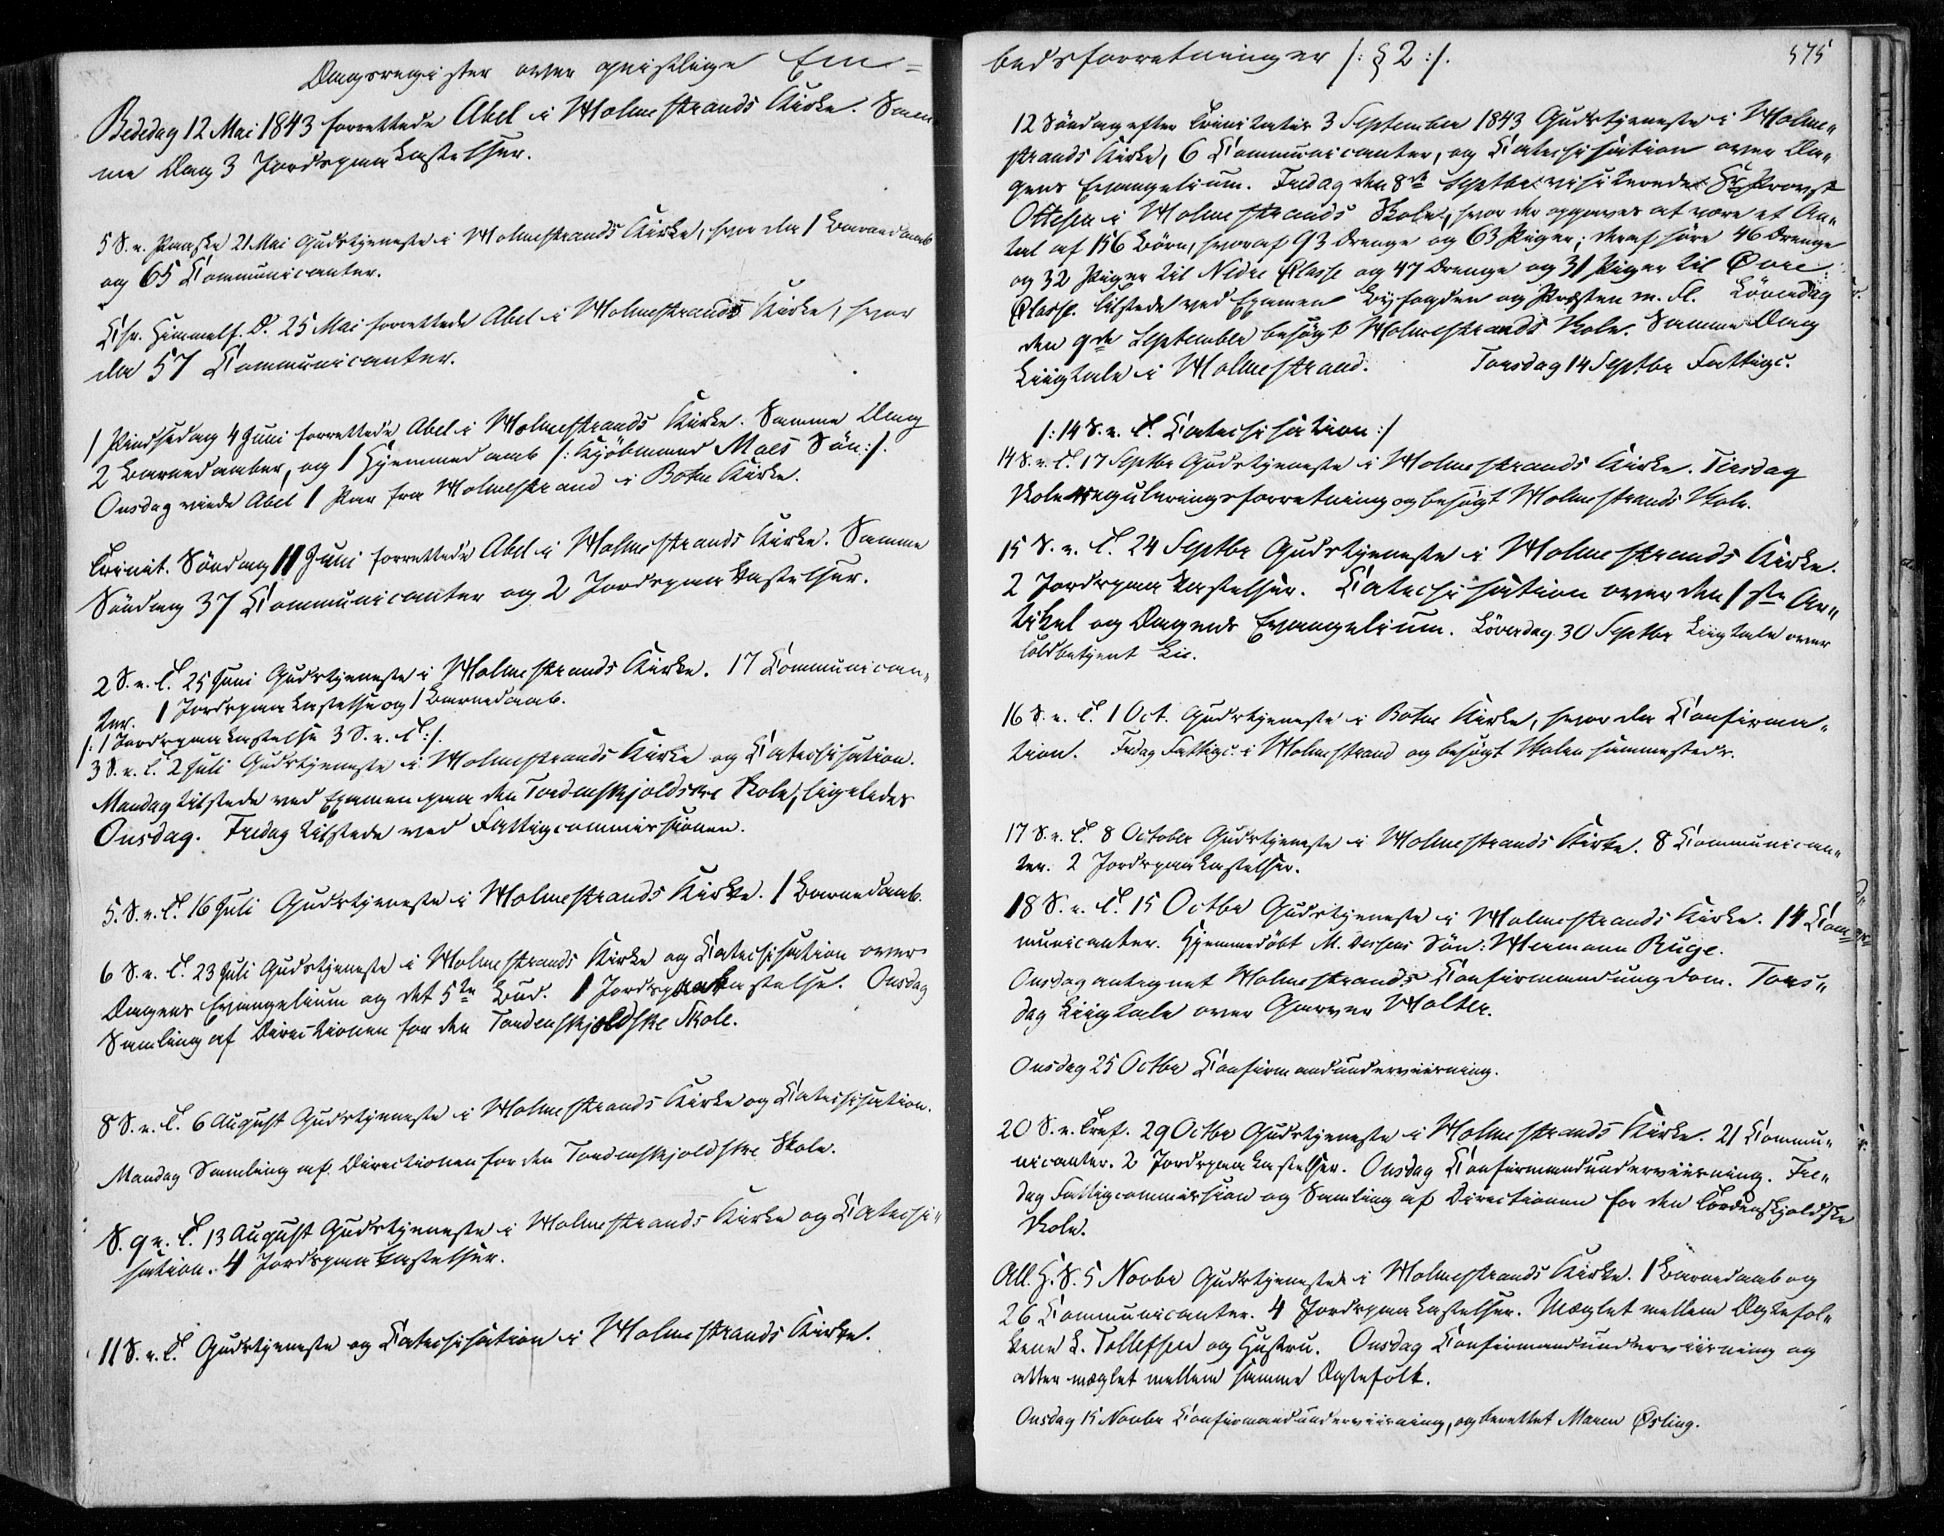 Dagsregister over geistlige Em=
Bededag 12 Mai 1843 forrettede Abel i Holmestrands Kirke. Sam
me Dag 3 Jordspaakastelser.
5 S. e. Paaske 21 Mai Gudstjeneste i Holmestrands Kirke, hvor der 1 Barnedaab
og 65 Communicanter.
Chr. Himmelf. D. 25 Mai forrettede Abel i Holmestrands Kirke, hvor
der 57 Communicanter.
1 Pindsedag 4 Juni forrettede Abel i Holmestrands Kirke. Samme Dag
2 Barnedaaber, og 1 Hjemmedaab /: Kjöbmand Maes Sön :/.
Onsdag viede Abel 1 Par fra Holmestrand i Botne Kirke.
Trinit. Söndag 11 Juni forrettede Abel i Holmestrands Kirke. Samme
Söndag 37 Communicanter og 2 Jordspaakastelser.
2 S. e. T. 25 Juni Gudstjeneste i Holmestrands Kirke. 17 Communican„
ter. 1 Jordspaakastelse og 1 Barnedaab.
/: 1 Jordspaakastelse 3 S. e. T :/.
3 S. e. T. 2 Juli Gudstjeneste i Holmestrands Kirke og Catechisation.
Mandag tilstede ved Examen paa den Tordenskjoldske Skole, ligeledes
Onsdag. Fredag tilstede ved Fattigcommissionen.
5. S. e. T. 16 Juli Gudstjeneste i Holmestrands Kirke. 1 Barnedaab.
6 S. e. T. 23 Juli Gudstjeneste i Holmestrands Kirke og Catechisation over
Dagens Evangelium og det 5te Bud. 1 Jordspaakastelse. Onsdag
Samling af Directionen for den Tordenskjoldske Skole.
8 S. e. T. 6 August Gudstjeneste i Holmestrands Kirke og Catechisation.
Mandag Samling af Directionen for den Tordenskjoldske Skole.
S. 9 e. T. 13 August Gudstjeneste i Holmestrands Kirke og Catechi„
sation. 4 Jordspaakastelser.
11 S. e. T. Gudstjeneste og Catechisation i Holmestrands Kirke.
bedsforretninger /: § 2 :/.
575
12 Söndag efter Trinitatis 3 September 1843 Gudstjeneste i Holme„
strands Kirke, 6 Communicanter, og Catechisation over Da„
gens Evangelium. Fredag den 8de Septbr visiterede Hr Provst
Ottesen i Holmestrands Skole, hvor der opgaves at være et An„
tal af 156 Börn, hvoraf 93 Drenge og 63 Piger; deraf höre 46 Drenge
og 32 Piger til Nedre Classe og 47 Drenge og 31 Piger til Övre
Classe. Tilstede ved Examen Byfogden og Præsten m. Fl. Löverdag
den 9de September besögt Holmestrands Skole. Samme Dag
Liigtale i Holmestrand. Torsdag 14 Septbr Fattigc.
/: 14 S. e. T. Catechisation :/
14 S. e. T. 17 Septbr Gudstjeneste i Holmestrands Kirke. Tirsdag
Skolereguleringsforretning og besögt Holmestrands Skole.
15 S. e. T. 24 Septbr Gudstjeneste i Holmestrands Kirke.
2 Jordspaakastelser. Catechisation over den 1ste Ar„
tikel og Dagens Evangelium. Löverdag 30 Septbr Liigtale over
Toldbetjent Lie.
16 S. e. T. 1 Oct. Gudstjeneste i Botne Kirke, hvor der Confirma„
tion. Fredag Fattigc. i Holmestrand og besögt Skolen sammesteds.
17 S. e. T. 8 October Gudstjeneste i Holmestrands Kirke. 8 Communican„
ter. 2 Jordspaakastelser.
18 S. e. T. 15 Octbr Gudstjeneste i Holmestrands Kirke. 14 Com
municanter. Hjemmedöbt M. Sön: Hermann Ruge.
Onsdag antegnet Holmestrands Confirmandungdom. Tors„
dag Liigtale over Garver Holter.
Onsdag 25 Octbr Confirmandunderviisning.
20 S. e. Tref. 29 Octbr Gudstjeneste i Holmestrands Kirke. 21 Commu„
nicanter. 2 Jordspaakastelser. Onsdag Confirmandunderviisning. Fre„
dag Fattigcommission og Samling af Directionen for den Tordenskjoldske
Skole.
All. H. S. 5 Novbr Gudstjeneste i Holmestrands Kirke. 1 Barnedaab og
26 Communicanter. 4 Jordspaakastelser. Mæglet mellem Ægtefol„
kene L. Tollefsen og Hustru. Onsdag Confirmandunderviisning og
atter mæglet mellem samme Ægtefolk.
Onsdag 15 Novbr Confirmandunderviisning, og berettet Maren Östing.